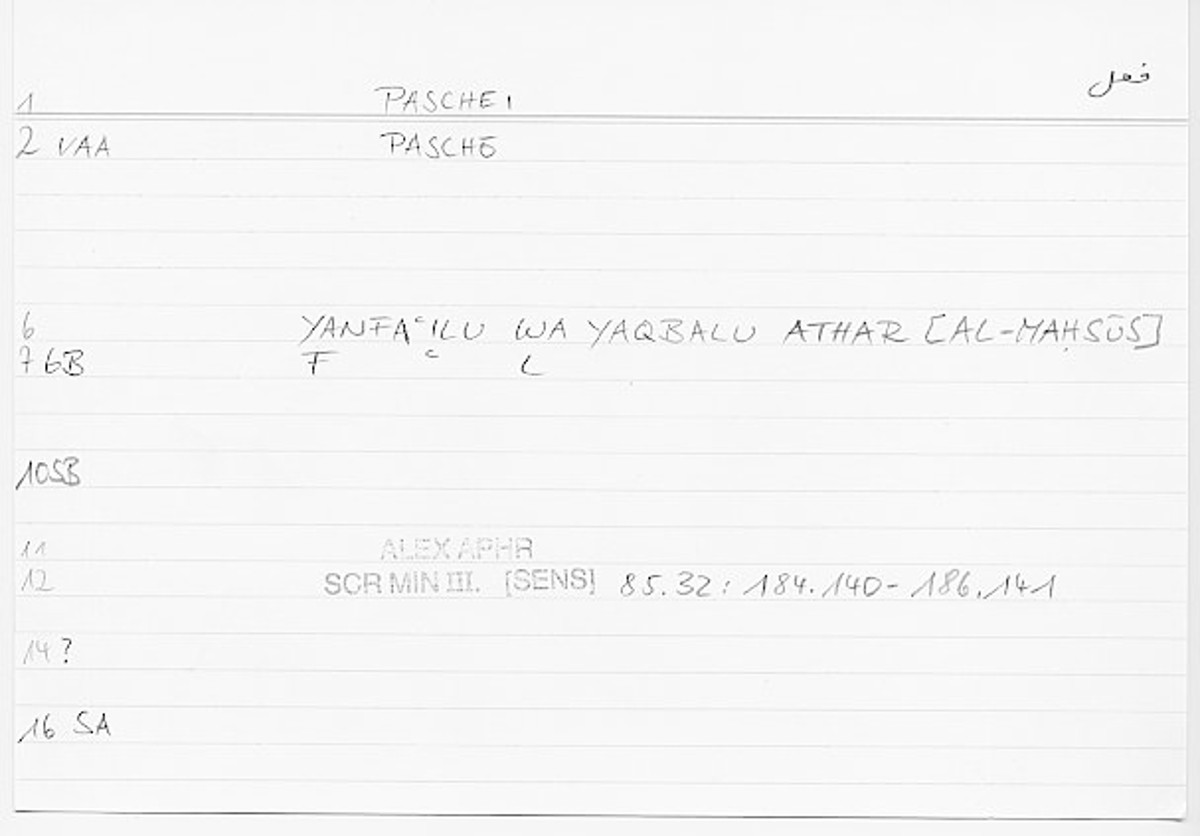 فعل
1 PASCHEI
2 VAA PASCHŌ
6 YANFAʿILU WA YAQBALU ATHAR [AL-MAḤSŪS]
7 6B F ʿ L
10SB
11 ALEX APHR
12 SCR MIN III. [SENS] 85.32: 184.140-186.141
14 ?
16 SA